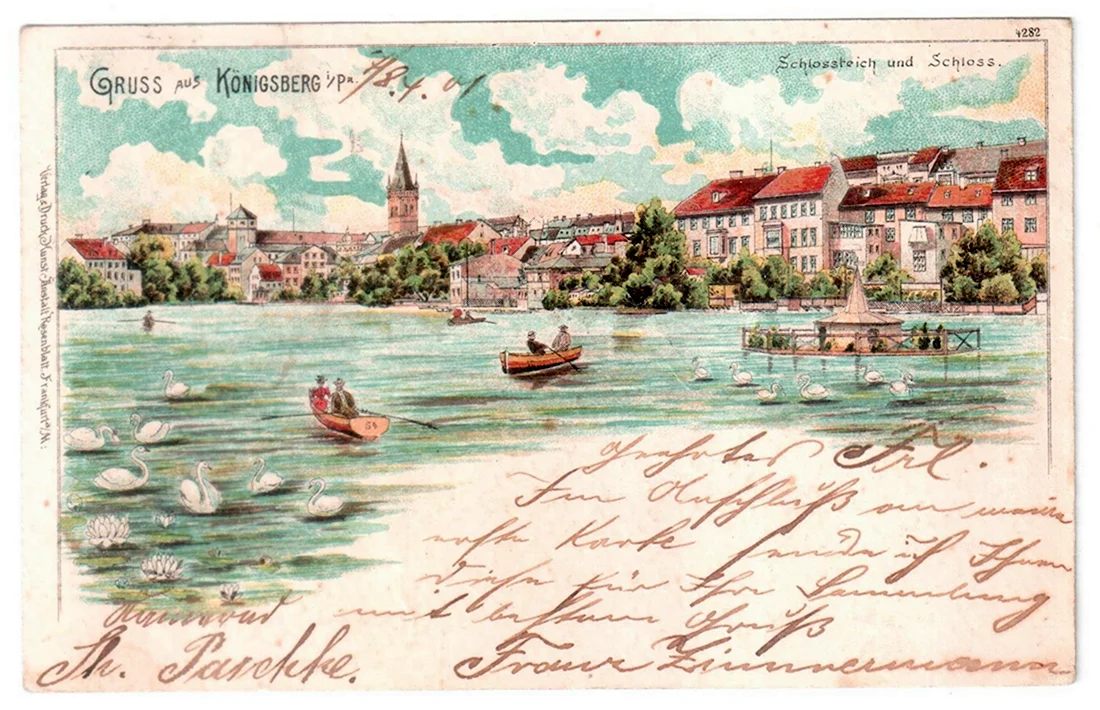 4282
GRUSS AUS KÖNIGSBERG i/Pr.
18.4.01
Schlossteich und Schloss.
Verlag & Druck Kunst-Anstalt Rosenblatt, Frankfurt a/M.
54
Geehrtes Frl.
Im Anschluß an meine
erste Karte sende ich Ihnen
diese für Ihre Sammlung
mit bestem Gruß
Th. Paschke. Franz Zimmermann